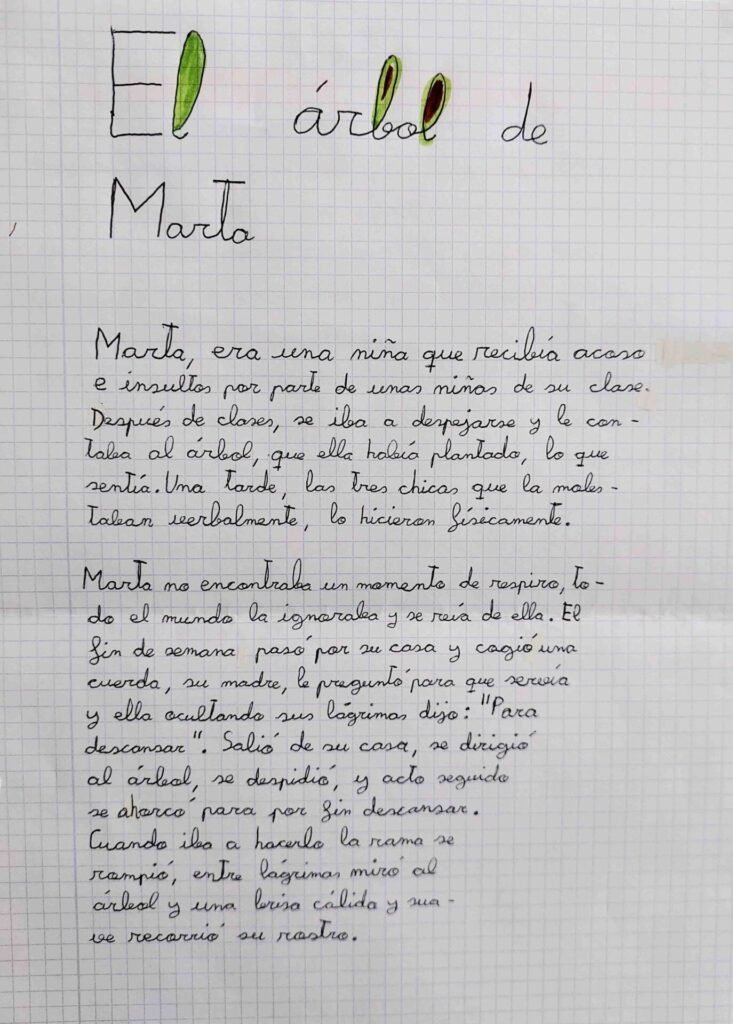 El árbol de
Marta
Marta, era una niña que recibía acoso
e insultos por parte de unas niñas de su clase.
Después de clases, se iba a despejarse y le con-
taba al árbol, que ella había plantado, lo que
sentía. Una tarde, las tres chicas que la moles-
taban verbalmente, lo hicieron físicamente.
Marta no encontraba un momento de respiro, to-
do el mundo la ignoraba y se reía de ella. El
fin de semana pasó por su casa y cogió una
cuerda, su madre, le preguntó para que servía
y ella ocultando sus lágrimas dijo: "Para
descansar". Salió de su casa, se dirigió
al árbol, se despidió, y acto seguido
se ahorcó para por fin descansar.
Cuando iba a hacerlo la rama se
rompió, entre lágrimas miró al
árbol y una brisa cálida y sua-
ve recorrió su rostro.